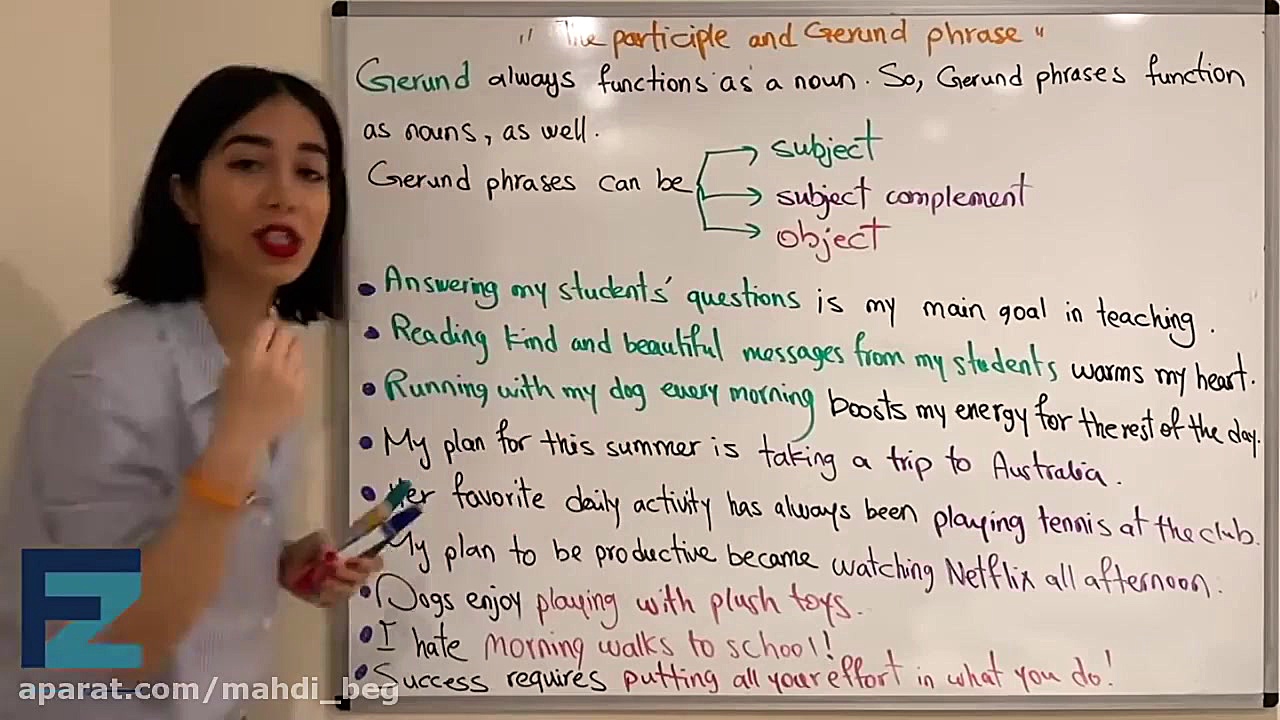 " The participle and Gerund phrase "
Gerund always functions as a noun. So, Gerund phrases function
as nouns, as well.
Gerund phrases can be
subject
subject complement
object
• Answering my students' questions is my main goal in teaching.
• Reading kind and beautiful messages from my students warms my heart.
• Running with my dog every morning boosts my energy for the rest of the day.
• My plan for this summer is taking a trip to Australia.
• Her favorite daily activity has always been playing tennis at the club.
My plan to be productive became watching Netflix all afternoon.
• Dogs enjoy playing with plush toys.
• I hate morning walks to school!
• Success requires putting all your effort in what you do!
EZ
aparat.com/mahdi_beg